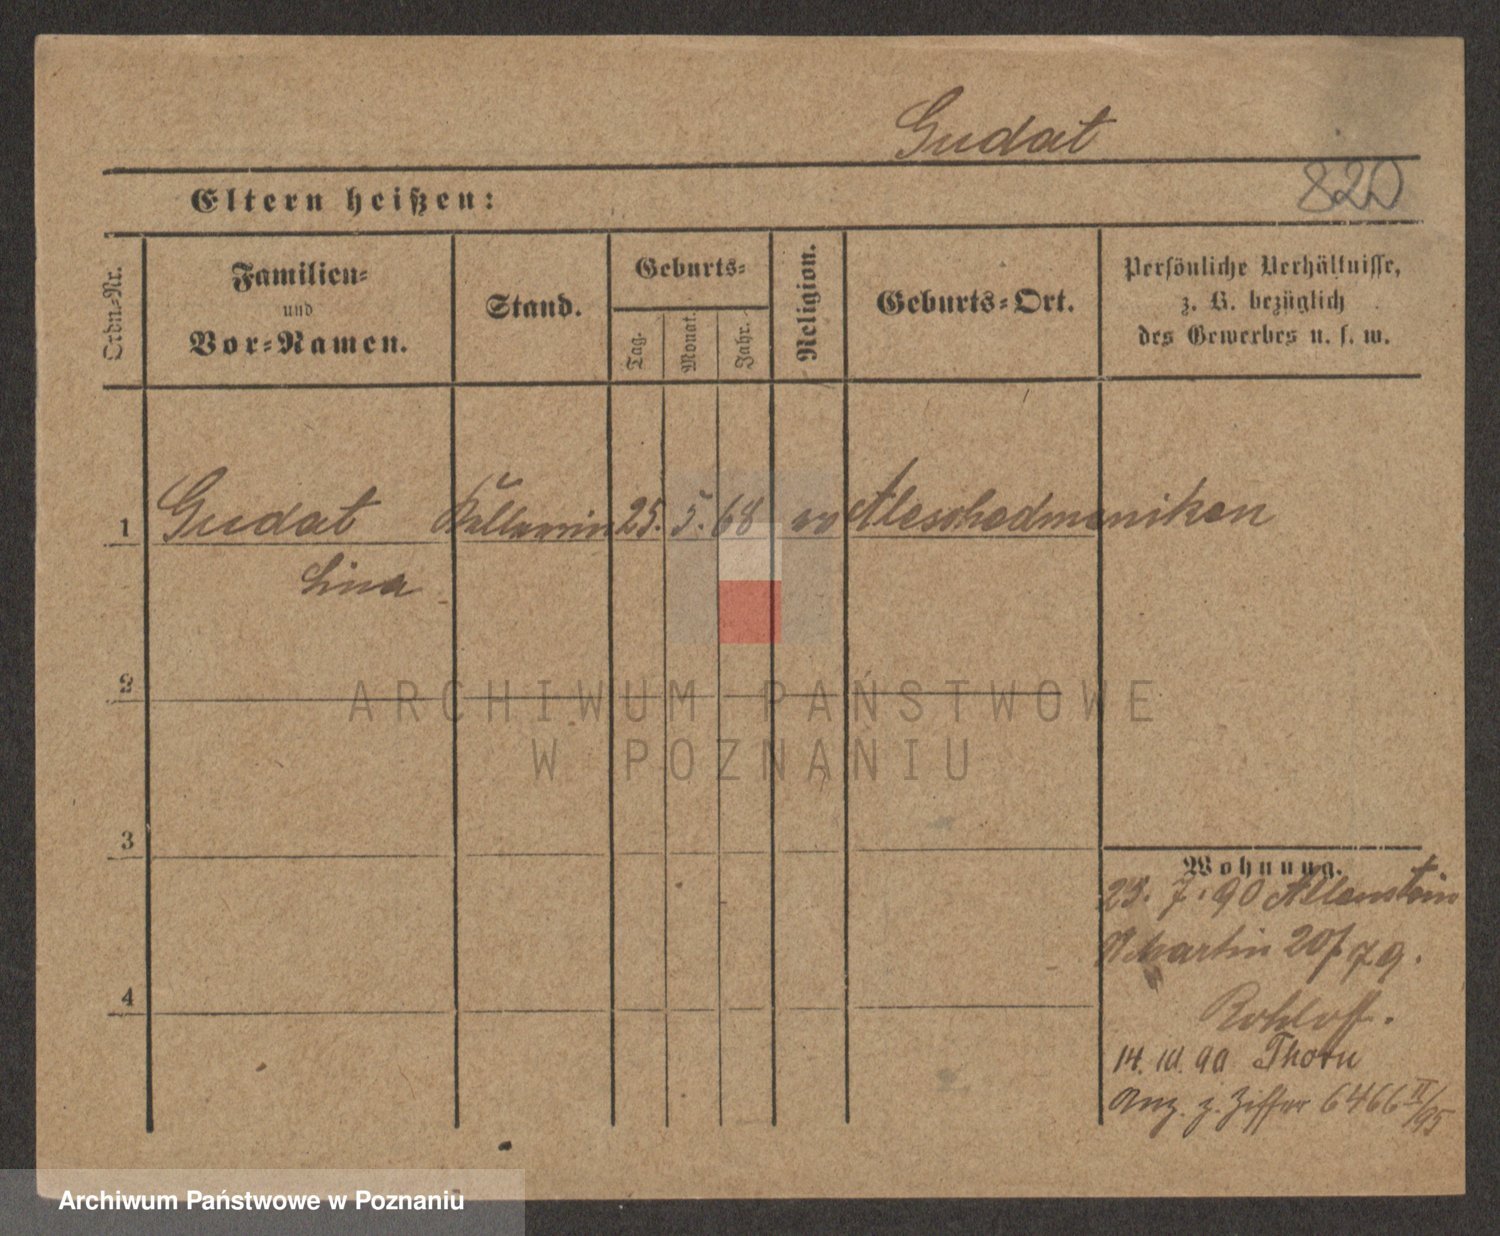 Gudat
820
Eltern heißen:
Ordn.-Nr.
Familien-
und
Vor-Namen.
Stand.
Geburts-
Tag.
Monat.
Jahr.
Religion.
Geburts-Ort.
Persönliche Verhältnisse,
z. B. bezüglich
des Gewerbes u. s. w.
1 Gudat Kellnerin 25. 5. 68 ev
Lina
2
ARCHIWUM PAŃSTWOWE
W POZNANIU
3
4
Wohnung.
23. 7. 90 Allenstein
Martin 20
Rohloff.
14. 10. 90 Thorn
Anz. z. Ziffer 6466 II/95
Archiwum Państwowe w Poznaniu